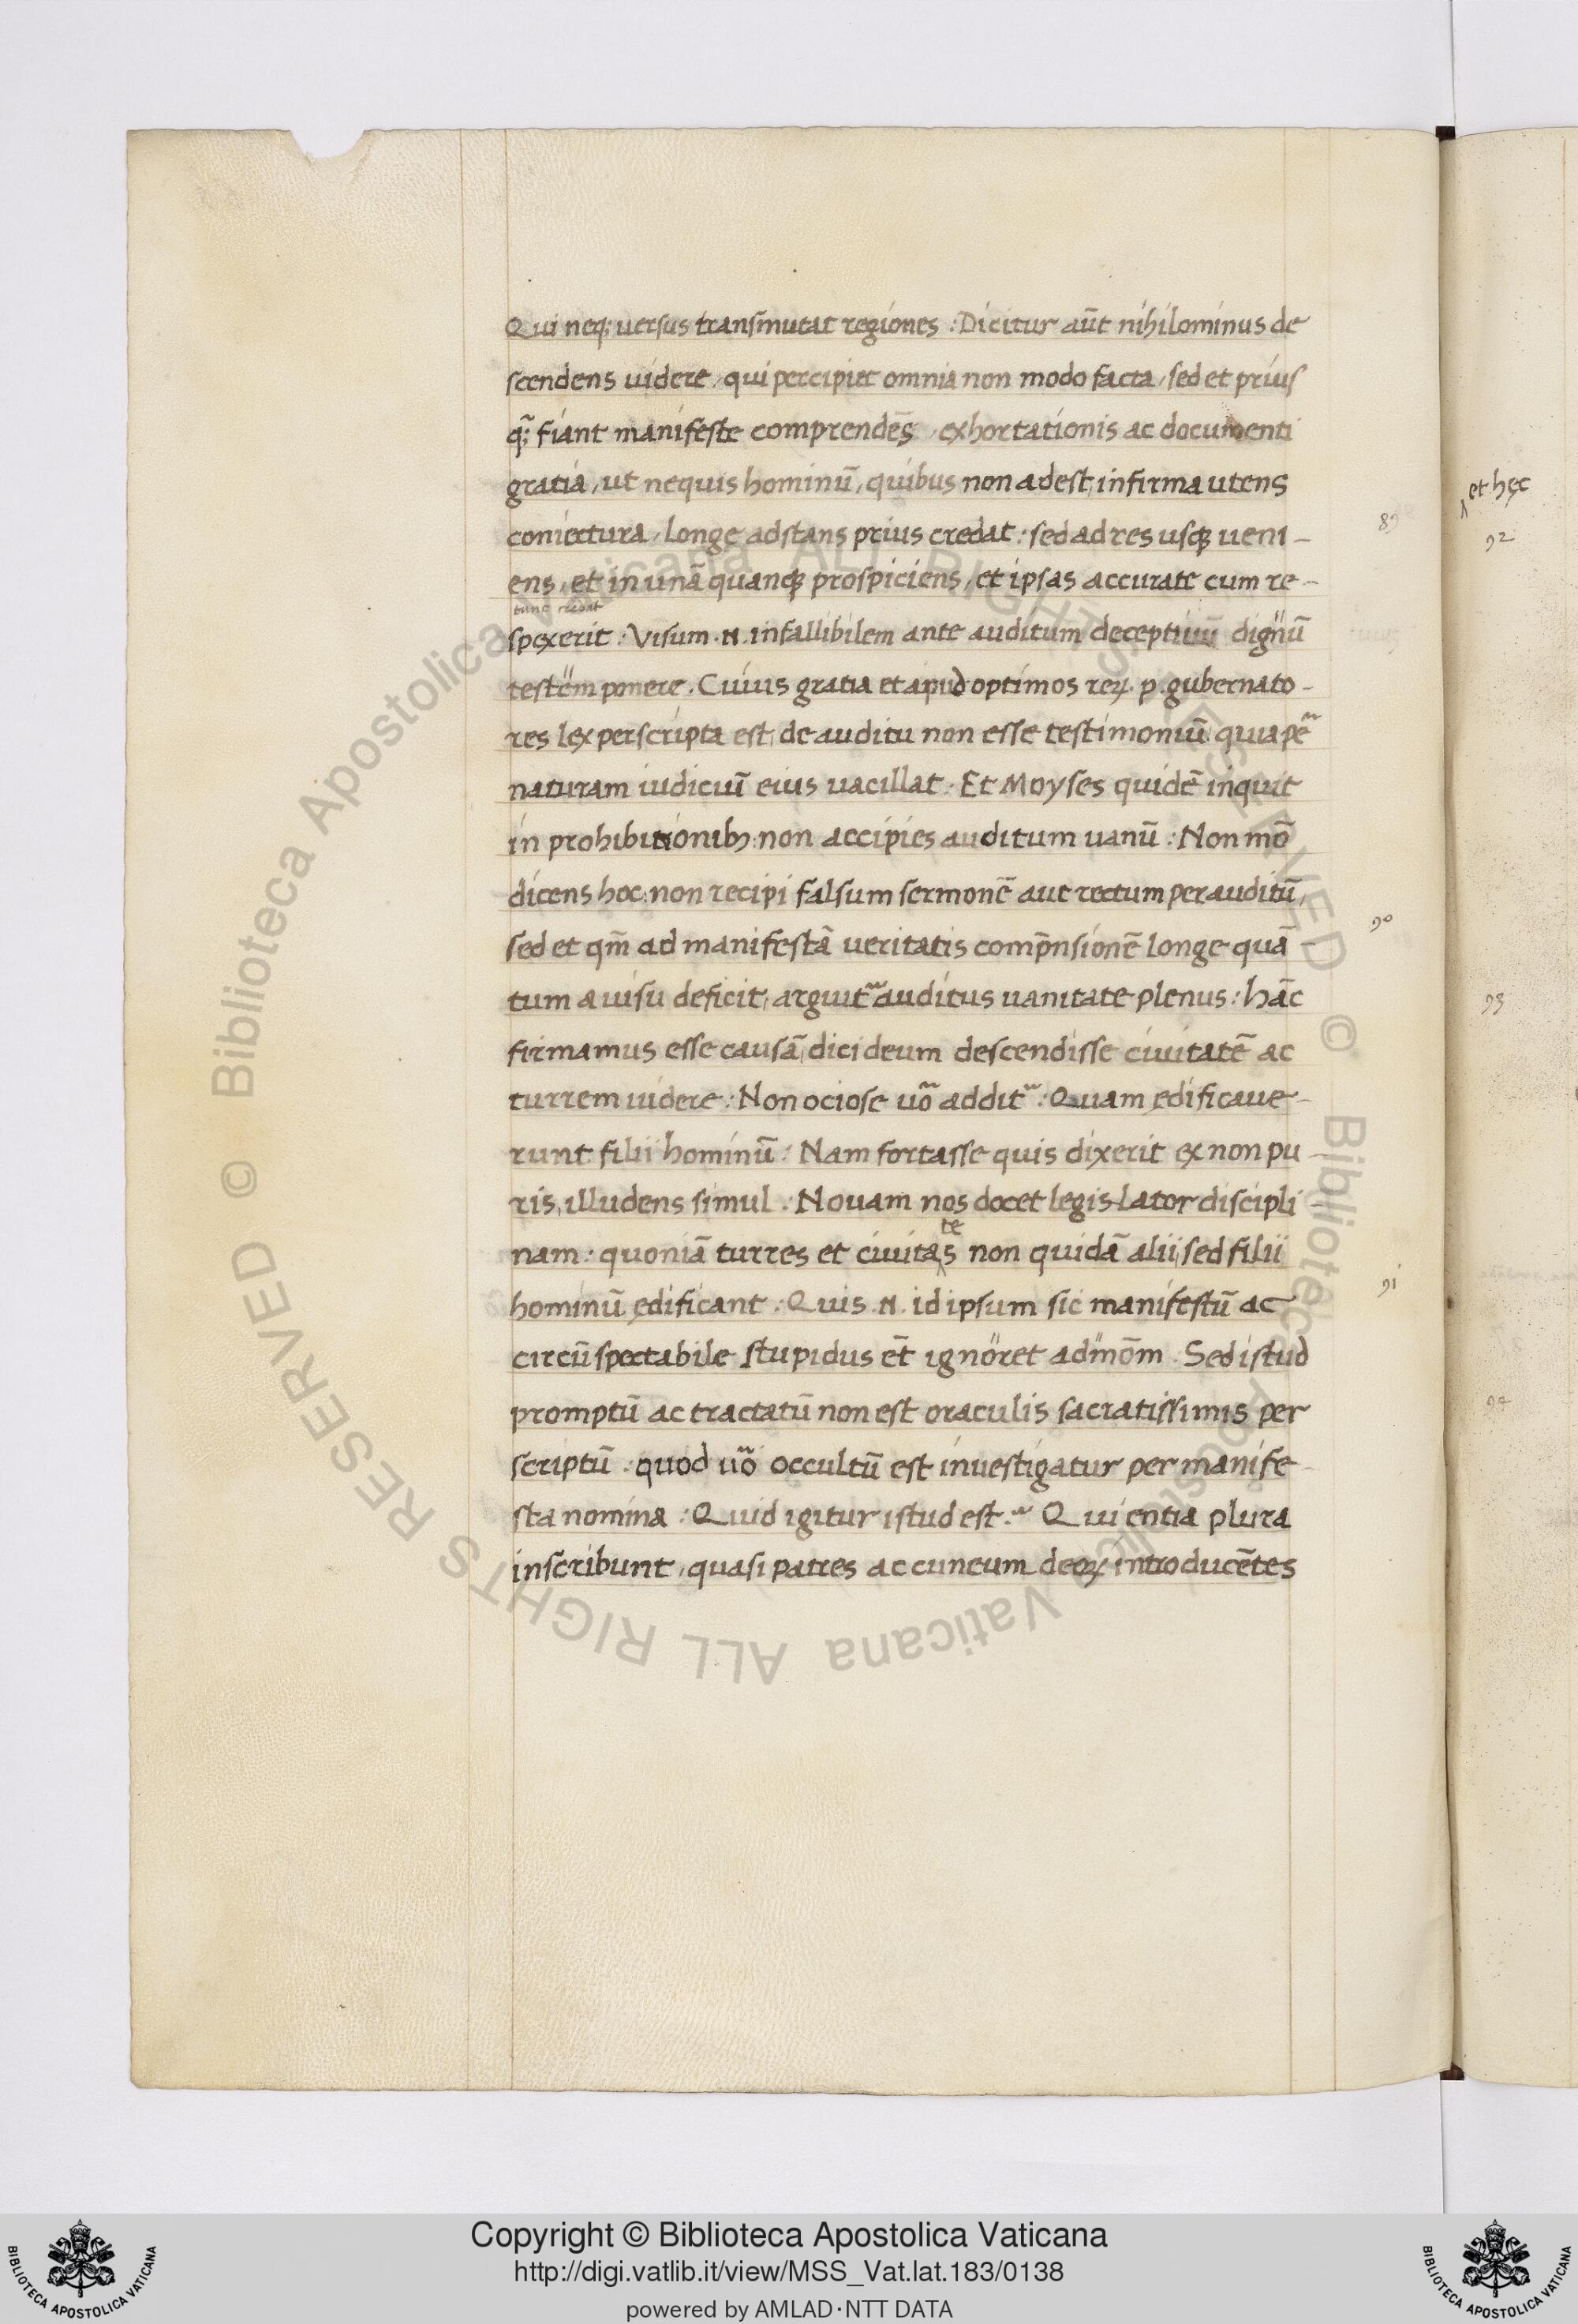 Qui neq; uersus transmutat regiones : Dicitur aūt nihilominus de
scendens uidere, qui percipiet omnia non modo facta, sed et prius
q̃; fiant manifeste comprendēs, exhortationis ac documenti
gratia, ut nequis hominū, quibus non adest, infirma utens
coniectura, longe adstans prius credat : sed ad res usqꝫ ueni-
89
ens, et in unā quanqꝫ prospiciens, et ipsas accurate cum re-
tunc credat
spexerit : Visum .N. infallibilem ante auditum deceptiuū dignū
testem ponere. Cuius gratia et apud optimos reꝝ. p. gubernato-
res lex perscripta est, de auditu non esse testimoniū quia pē
naturam iudiciū eius uacillat. Et Moyses quidē inquit
in prohibitionibꝫ: non accipies auditum uanū : Non mō
dicens hoc: non recipi falsum sermonē aut rectum per auditū,
90
sed et qm̄ ad manifestā ueritatis comp̄nsionē longe quā-
tum a uisu deficit, arguit᷑ auditus uanitate plenus : hāc
firmamus esse causā, dici deum descendisse ciuitatē ac
turrem uidere : Non ociose uõ addit᷑ : Quam ędificaue-
runt filii hominū : Nam fortasse quis dixerit ex non pu-
ris, illudens simul : Nouam nos docet legis-lator discipli-
te
nam : quoniā turres et ciuita‸s non quidā alii, sed filii
91
hominū ędificant : Quis .N. id ipsum sic manifestū ac
circūspectabile stupidus ēt ignoret admõm. Sed istud
promptū ac tractatū non est oraculis sacratissimis per
scriptū : quod uõ occultū est inuestigatur per manife-
sta nomina : Quid igitur istud est.~ Qui entia plura
inscribunt, quasi patres ac cuneum deoꝝ introducētes
‸ et hęc
92
93
94
Copyright © Biblioteca Apostolica Vaticana
http://digi.vatlib.it/view/MSS_Vat.lat.183/0138
powered by AMLAD·NTT DATA
BIBLIOTECA APOSTOLICA VATICANA
BIBLIOTECA APOSTOLICA VATICANA
© Biblioteca Apostolica Vaticana ALL RIGHTS RESERVED © Biblioteca Apostolica Vaticana ALL RIGHTS RESERVED